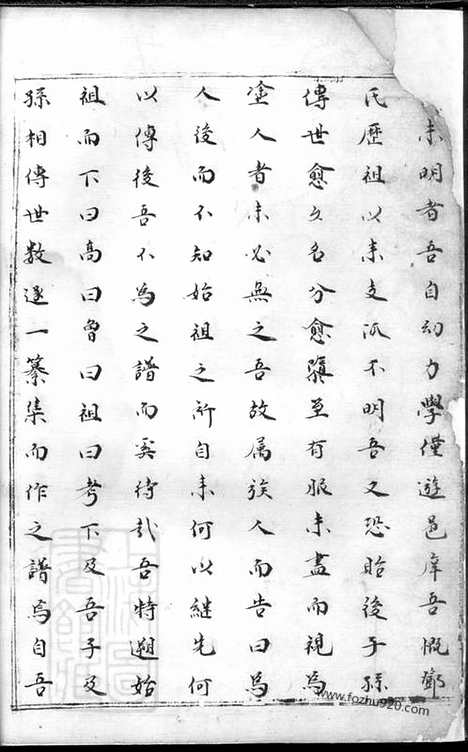 未明者吾自幼力學僅遊邑庠吾慨鄧
氏歷祖以來支派不明吾又恐貽後子孫
傳世愈久名分愈隳至有服未盡而視為
塗人者未必無之吾故属族人而告曰為
人後而不知始祖之所自來何以継先何
以傳後吾不為之譜而奚待哉吾特遡始
祖而下曰高曰曾曰祖曰考下及吾子及
孫相傳世数逐一纂集而作之譜焉自吾
www.fozhu920.com